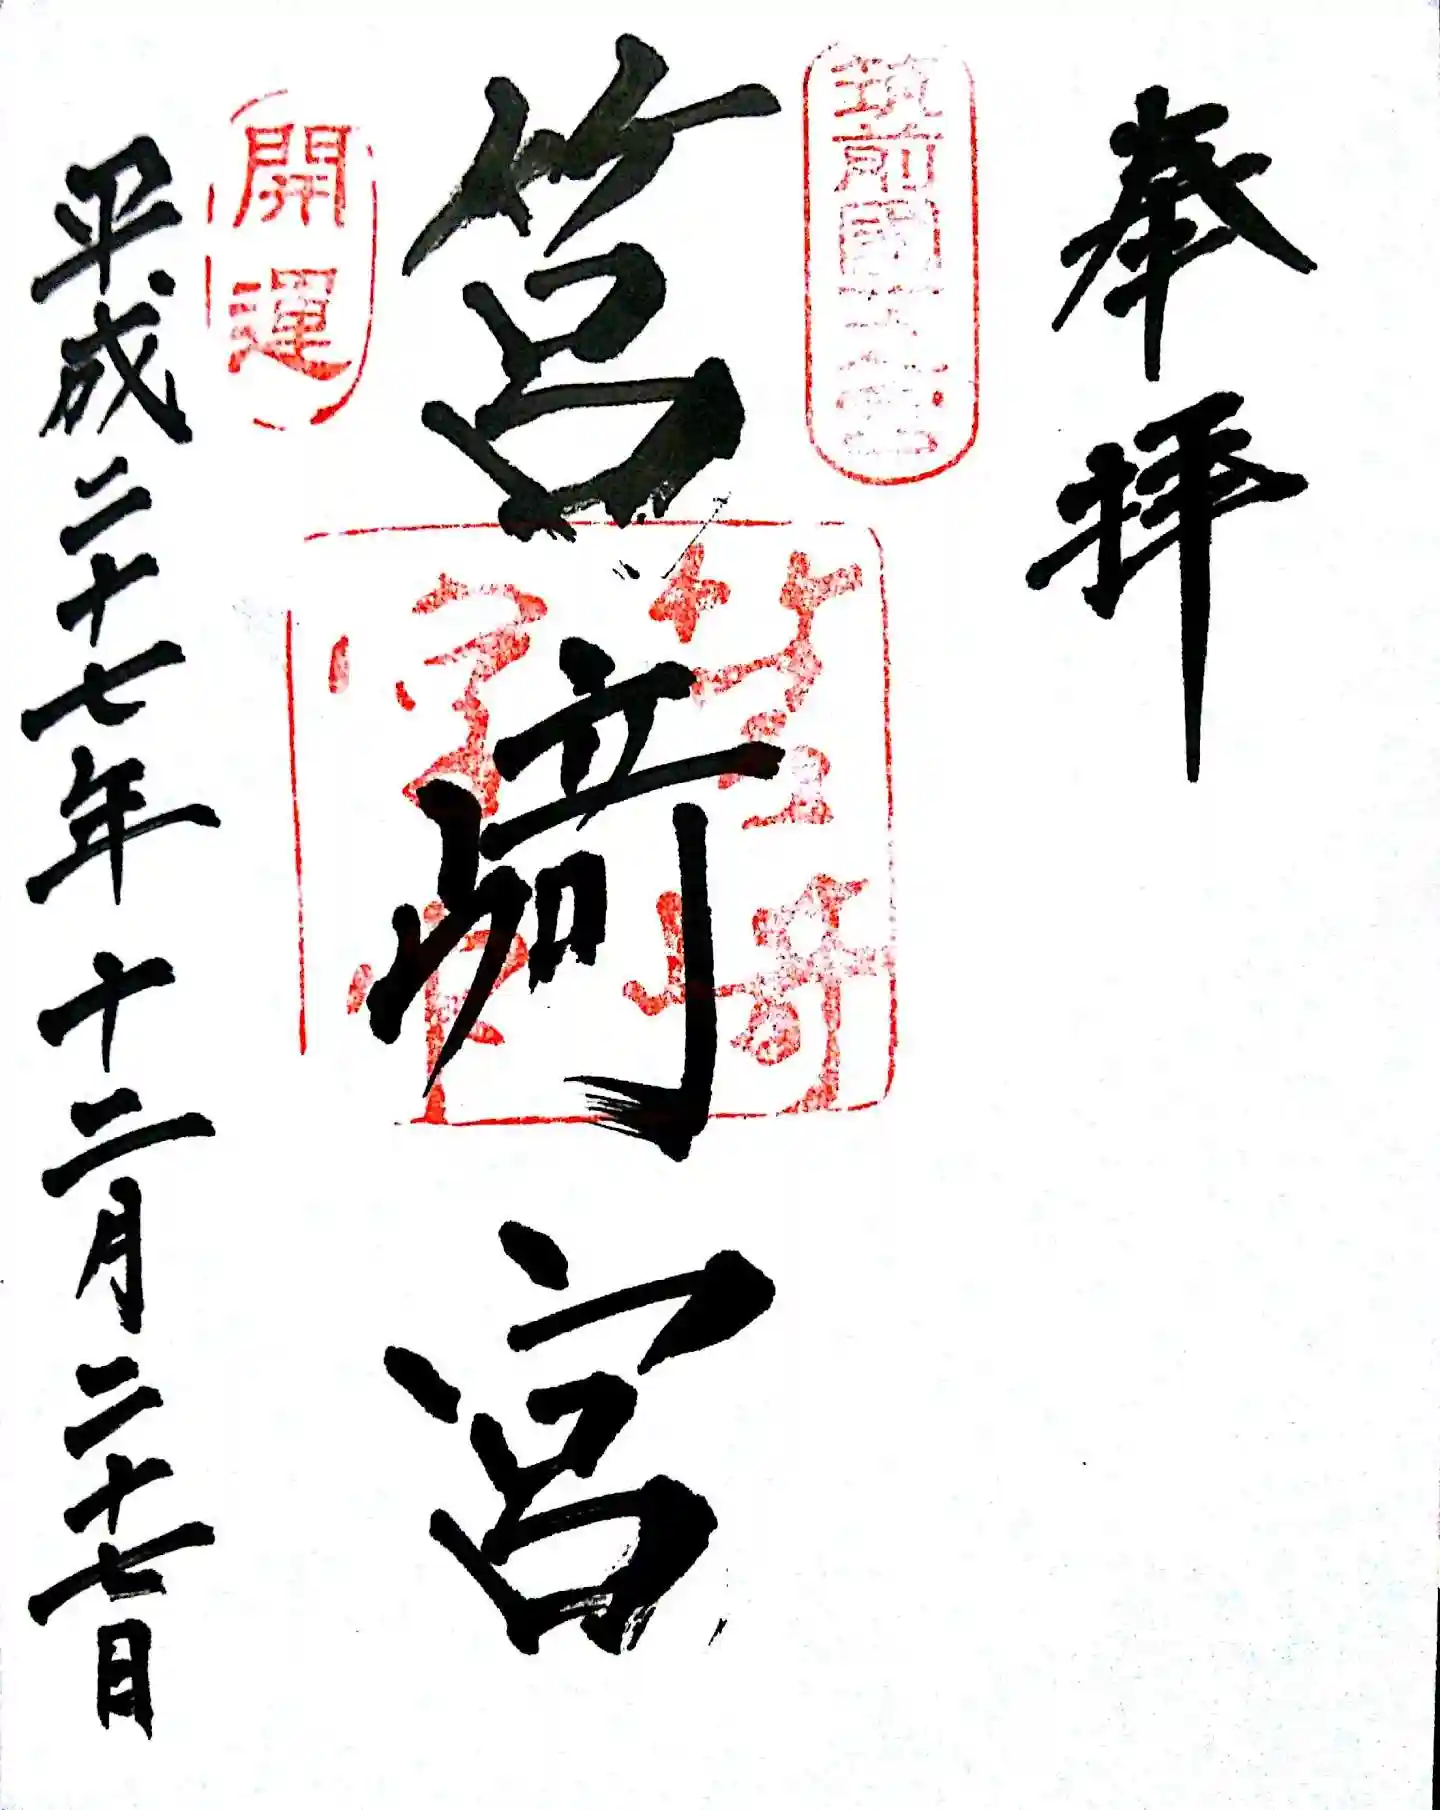 奉拝
筑前國一之宮
筥崎宮
開運
平成二十七年十二月二十七日